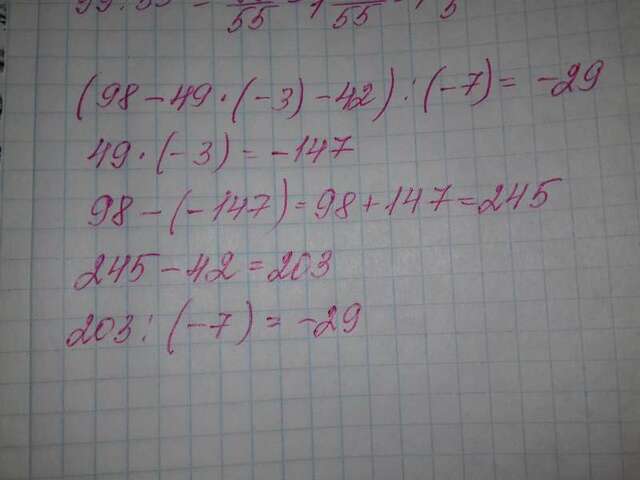 (98 - 49 · (-3) - 42) : (-7) = -29
49 · (-3) = -147
98 - (-147) = 98 + 147 = 245
245 - 42 = 203
203 : (-7) = -29